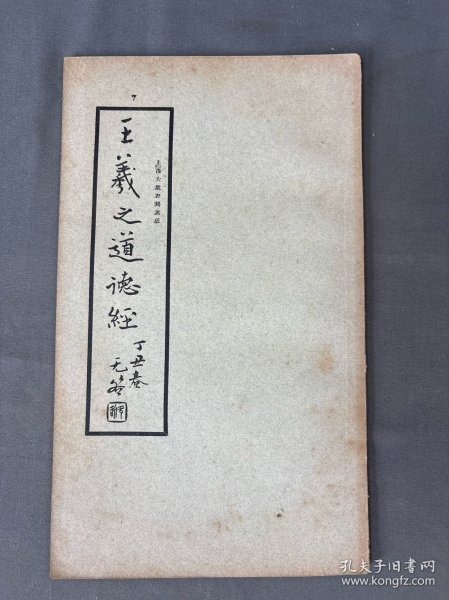 7
上海大眾書局印行
王羲之道德經
丁丑春
无咎
孔夫子旧书网
www.kongfz.com